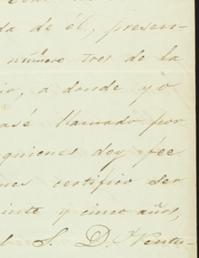 da de él, presen-
número tres de la
io, a donde yo
asé llamado por
quienes doy fee
nes certifico ser
inte y cinco años,
l S. D. Ventu-